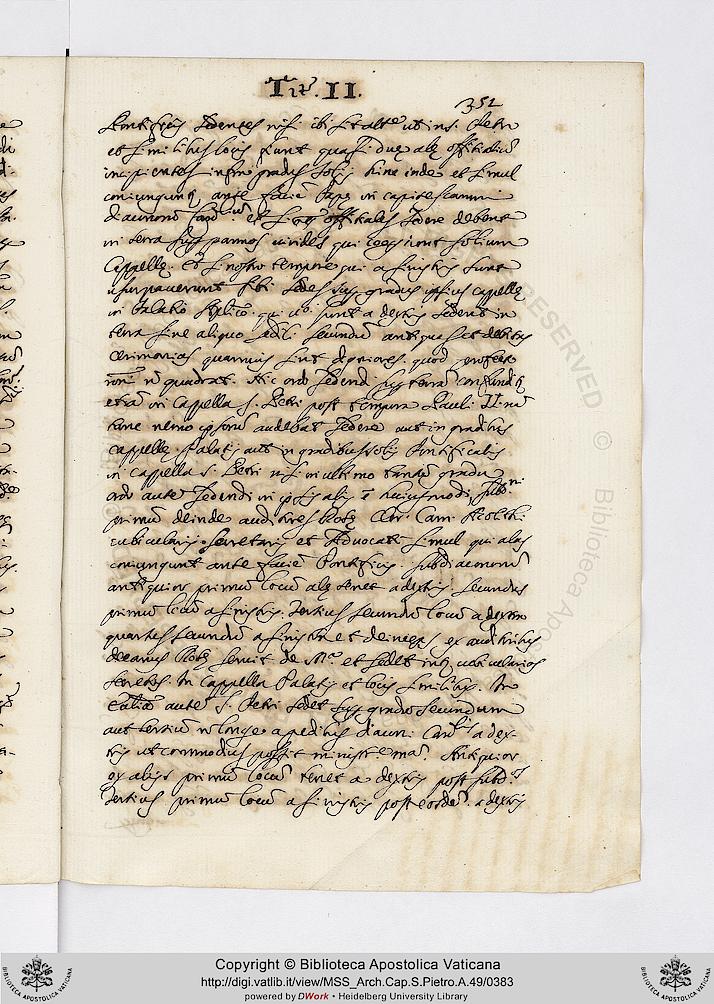 Tit. II.
352
Pontificis sedentes nisi ibi sit altare ut in s. Petri
et similibus locis sunt quasi duae alae officialium
incipientes infra gradus solij hinc inde et simul
coniunguntur ante faciem Papae in capite scamni
diaconorum Card. et officiales sedere debent
in terra super pannos virides qui tegunt solium
Cappellae. et si nostro tempore qui a sinistris sunt
usurpaverunt sibi sedes super gradus ipsius capellae
in Palatio Aplico. qui vo. sunt a dextris sedent in
terra sine aliquo sedili secundum antiquas et debitas
cerimonias quamvis sint digniores. quod profecto
non quadrat. Hic ordo sedendi super terram confundit
etiam in Cappella S. Petri post tempora Pauli II. nam
tunc nemo ipsorum audebat sedere aut in gradibus
cappellae Palatij aut in gradibus solij Pontificalis
in cappella S. Petri nisi in ultimo tantum gradu
ordo autem sedendi in huiusmodi, Subd.ni
primum deinde auditores Rotae Cler. Cam. Acolithi
cubicularij secretarij et Advocati simul qui alas
coniungunt ante faciem Pontificis. Subdiaconorum
antiquior primum locum alae tenet a dextris secundus
primum locum a sinistris. Tertius secundum locum a dextro
quartus secundum a sinistro et deinceps ex auditoribus
decanus Rotae servit de M.a et sedet inter cubicularios
secretos. In Cappella Palatij et locis similibus. In
autem S. Petri sedet super gradum secundum
aut tertium non longe a pedibus diaconi Card.lis a dex-
tris ut commodius possit ministr. Antiquior
ex alijs primum locum tenet a dextris post subd.
Tertius primum locum a sinistris post eosdem. a dextris
RESERVED © Biblioteca Apos
BIBLIOTECA APOSTOLICA VATICANA
Copyright © Biblioteca Apostolica Vaticana
http://digi.vatlib.it/view/MSS_Arch.Cap.S.Pietro.A.49/0383
powered by DWork • Heidelberg University Library
BIBLIOTECA APOSTOLICA VATICANA